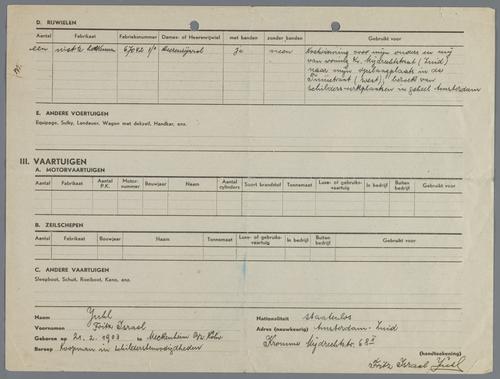 D. RIJWIELEN
Aantal Fabrikaat Fabrieksnummer Dames- of Heerenrijwiel met banden zonder banden Gebruikt voor
een niet te 67082 Heerenrijwiel Ja neen voor mijn in mij
van woning Mijdrechtstraat (Zuid)
naar mijn opslagplaats in de
(West), bezoek van
schilders-werkplaatsen in geheel Amsterdam
E. ANDERE VOERTUIGEN
Equipage, Sulky, Landauer, Wagen met dekzeil, Handkar, enz.
III. VAARTUIGEN
A. MOTORVAARTUIGEN
Aantal Fabrikaat Aantal P.K. Motor-nummer Bouwjaar Naam Aantal cylinders Soort brandstof Tonnemaat Luxe- of gebruiks-vaartuig In bedrijf Buiten bedrijf Gebruikt voor
B. ZEILSCHEPEN
Aantal Fabrikaat Bouwjaar Naam Tonnemaat Luxe- of gebruiks-vaartuig In bedrijf Buiten bedrijf Gebruikt voor
C. ANDERE VAARTUIGEN
Sleepboot, Schuit, Roeiboot, Kano, enz.
Naam Juhl
Voornamen Fritz Israel
Geboren op 21. 2. 1903 te Meckenheim
Beroep Koopman in schildersbenodigdheden
Nationaliteit staatenlos
Adres (nauwkeurig) Amsterdam-Zuid
Kromme Mijdrechtstr. 68
(handteekening)
Fritz Israel Juhl